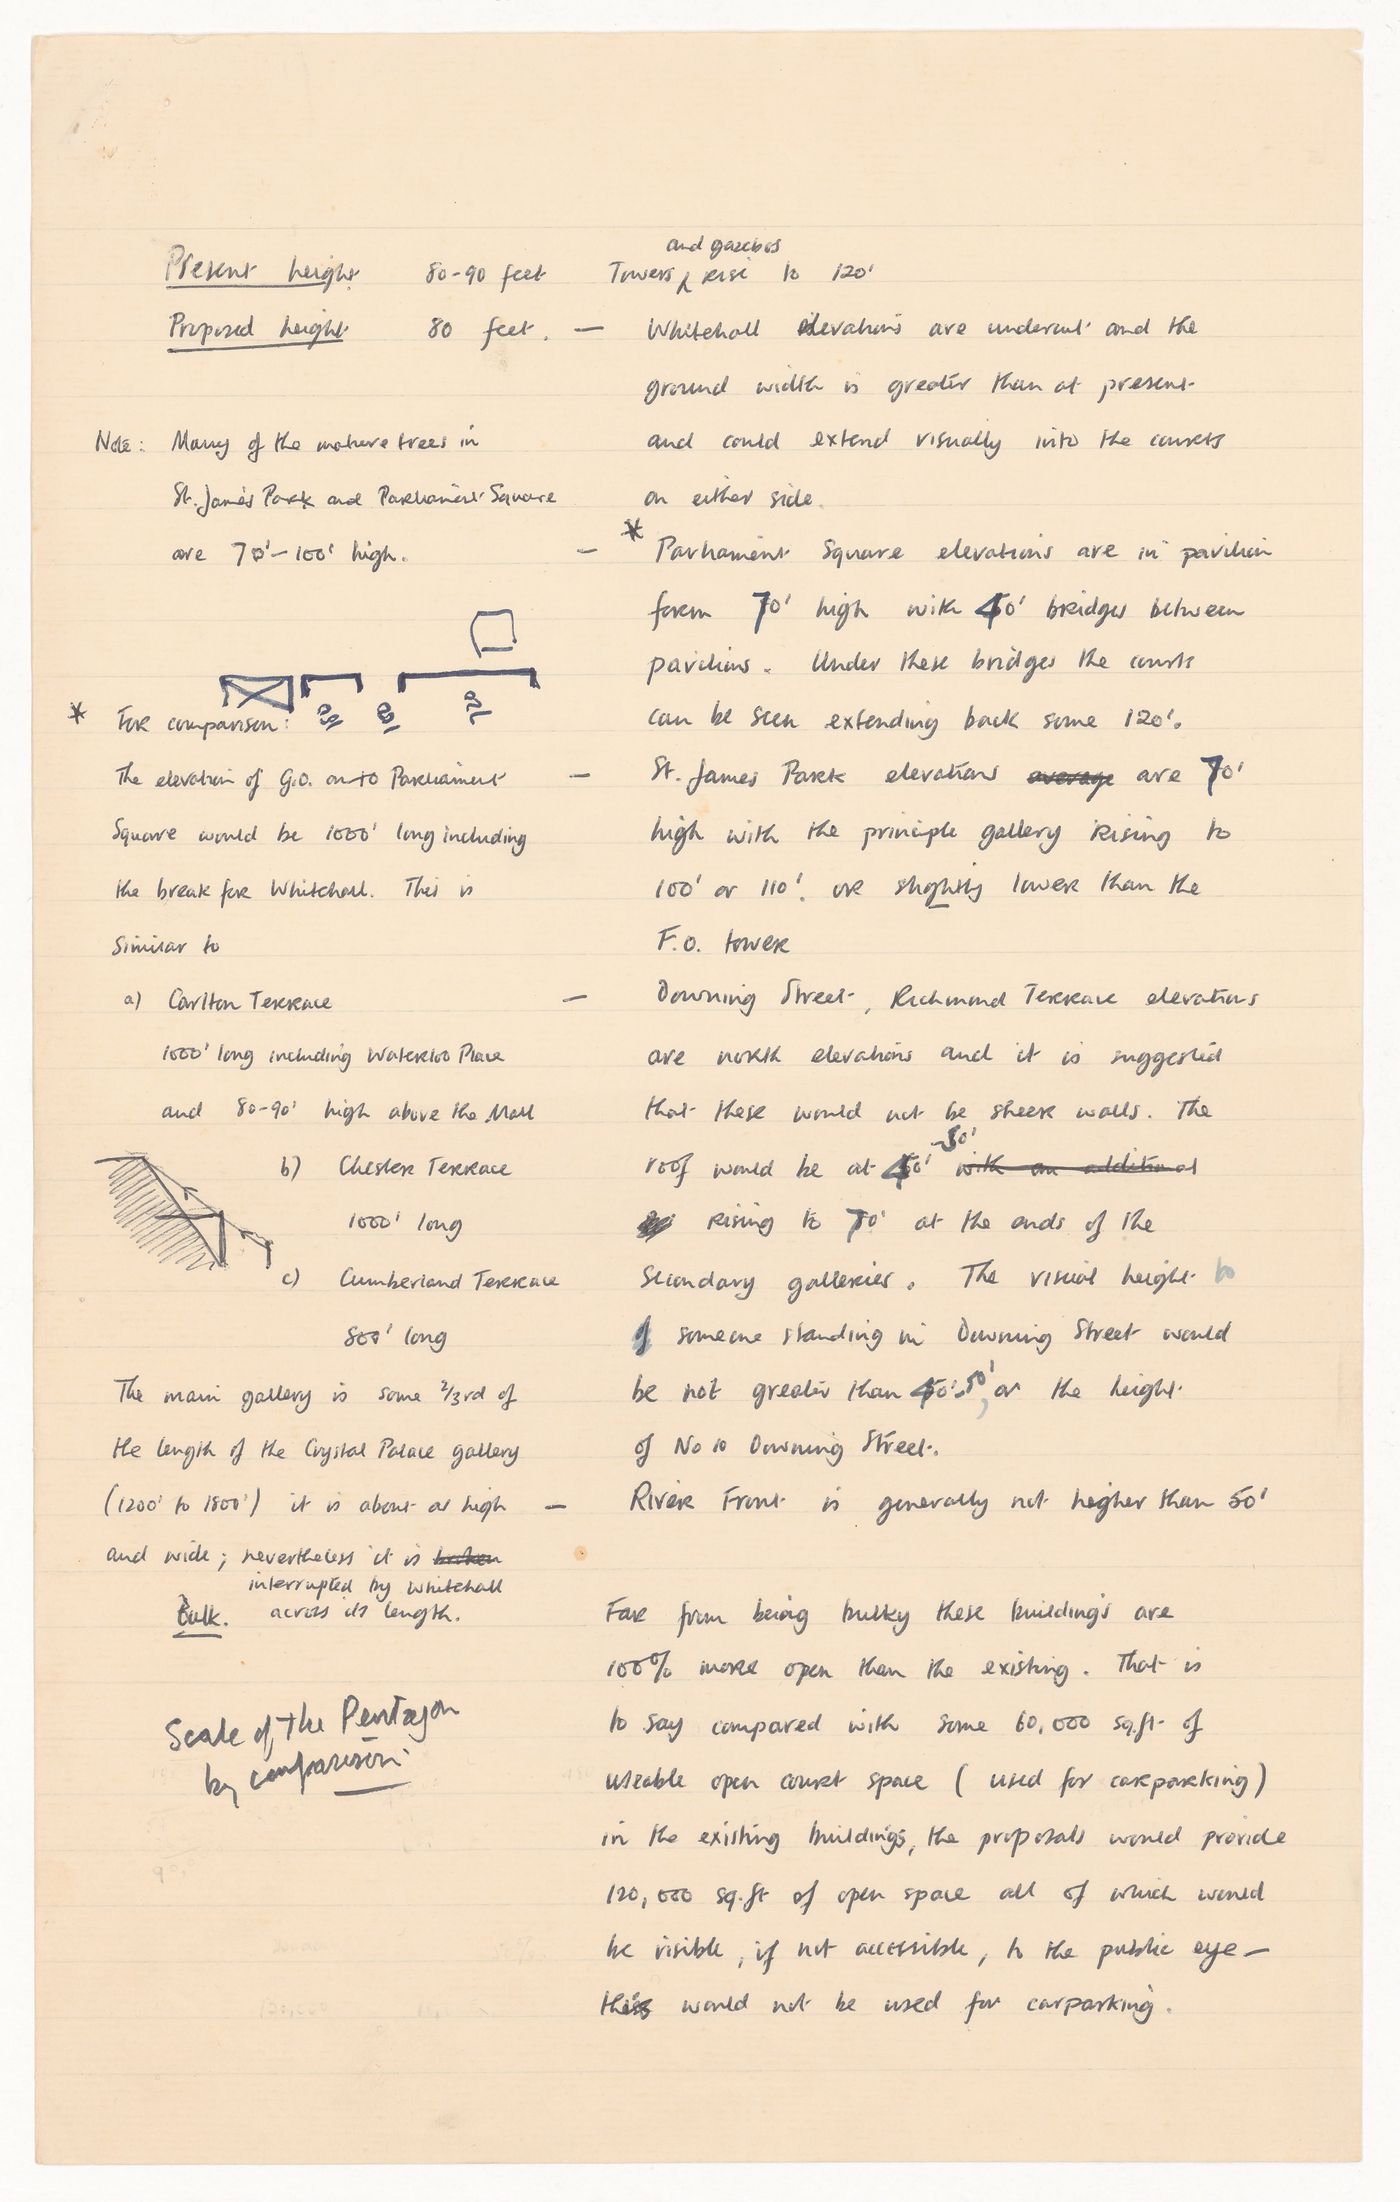 and gazebos
Present height 80-90 feet Towers rise to 120'
Proposed height 80 feet. — Whitehall elevations are undercut and the
ground width is greater than at present
and could extend visually into the courts
on either side.
Note: Many of the mature trees in
St. James Park and Parliament Square
are 70'-100' high.
— * Parliament Square elevations are in pavilion
form 70' high with 40' bridges between
pavilions. Under these bridges the courts
can be seen extending back some 120'.
— St. James Park elevations average are 70'
high with the principle gallery rising to
100' or 110'. or slightly lower than the
F.O. tower
— Downing Street, Richmond Terrace elevations
are north elevations and it is suggested
that these would not be sheer walls. The
-50'
roof would be at 40' with an additional
rising to 70' at the ends of the
secondary galleries. The visual height to
of someone standing in Downing Street would
be not greater than 40'-50', or the height
of No 10 Downing Street.
— River Front is generally not higher than 50'
* For comparison:
The elevation of G.O. on to Parliament
Square would be 1000' long including
the break for Whitehall. This is
similar to
a) Carlton Terrace
1000' long including Waterloo Place
and 80-90' high above the Mall
b) Chester Terrace
1000' long
c) Cumberland Terrace
800' long
The main gallery is some 2/3rd of
the length of the Crystal Palace gallery
(1200' to 1800') it is about as high
and wide; nevertheless it is broken
interrupted by Whitehall
across its length.
Bulk.
Far from being bulky these buildings are
100% more open than the existing. That is
to say compared with some 60,000 sq.ft of
useable open court space (used for carparking)
in the existing buildings, the proposals would provide
120,000 sq.ft of open space all of which would
be visible, if not accessible, to the public eye —
this would not be used for carparking.
Scale of the Pentagon
by comparison